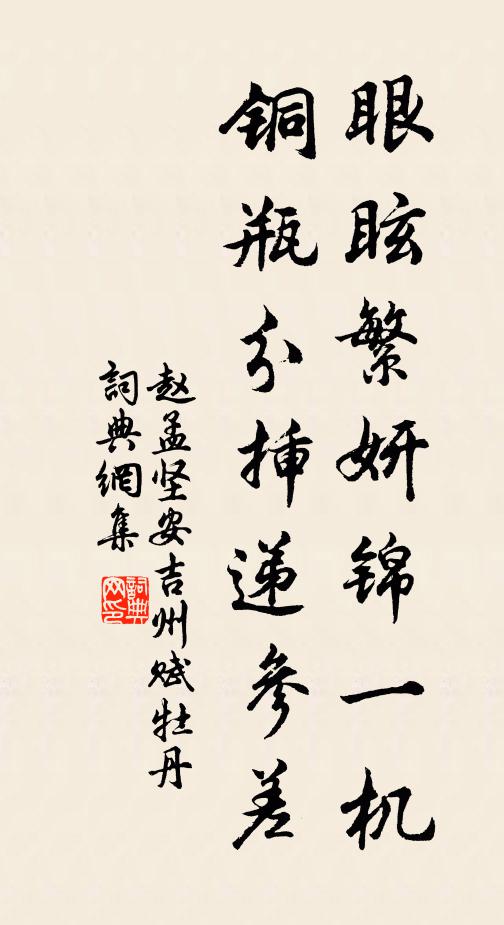 眼眩繁妍锦一机
铜瓶分插递参差
赵孟坚安吉州赋牡丹
詞典網集
詞典
网印